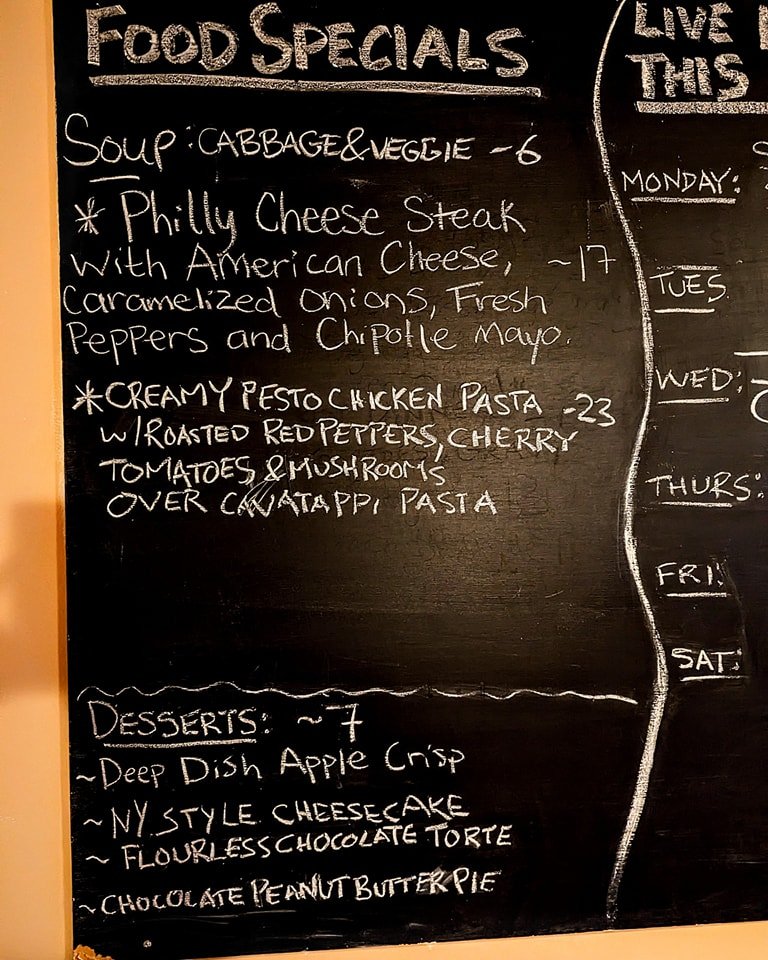 FOOD SPECIALS
Soup: CABBAGE & VEGGIE ~6
* Philly Cheese Steak
with American Cheese, ~17
Caramelized onions, Fresh
Peppers and Chipotle Mayo.
* CREAMY PESTO CHICKEN PASTA -23
W/ ROASTED RED PEPPERS, CHERRY
TOMATOES & MUSHROOMS
OVER CAVATAPPI PASTA
DESSERTS: ~7
~Deep Dish Apple Crisp
~NY STYLE CHEESECAKE
~ FLOURLESS CHOCOLATE TORTE
~CHOCOLATE PEANUT BUTTER PIE
LIVE
THIS
MONDAY:
TUES
WED:
THURS:
FRI:
SAT: